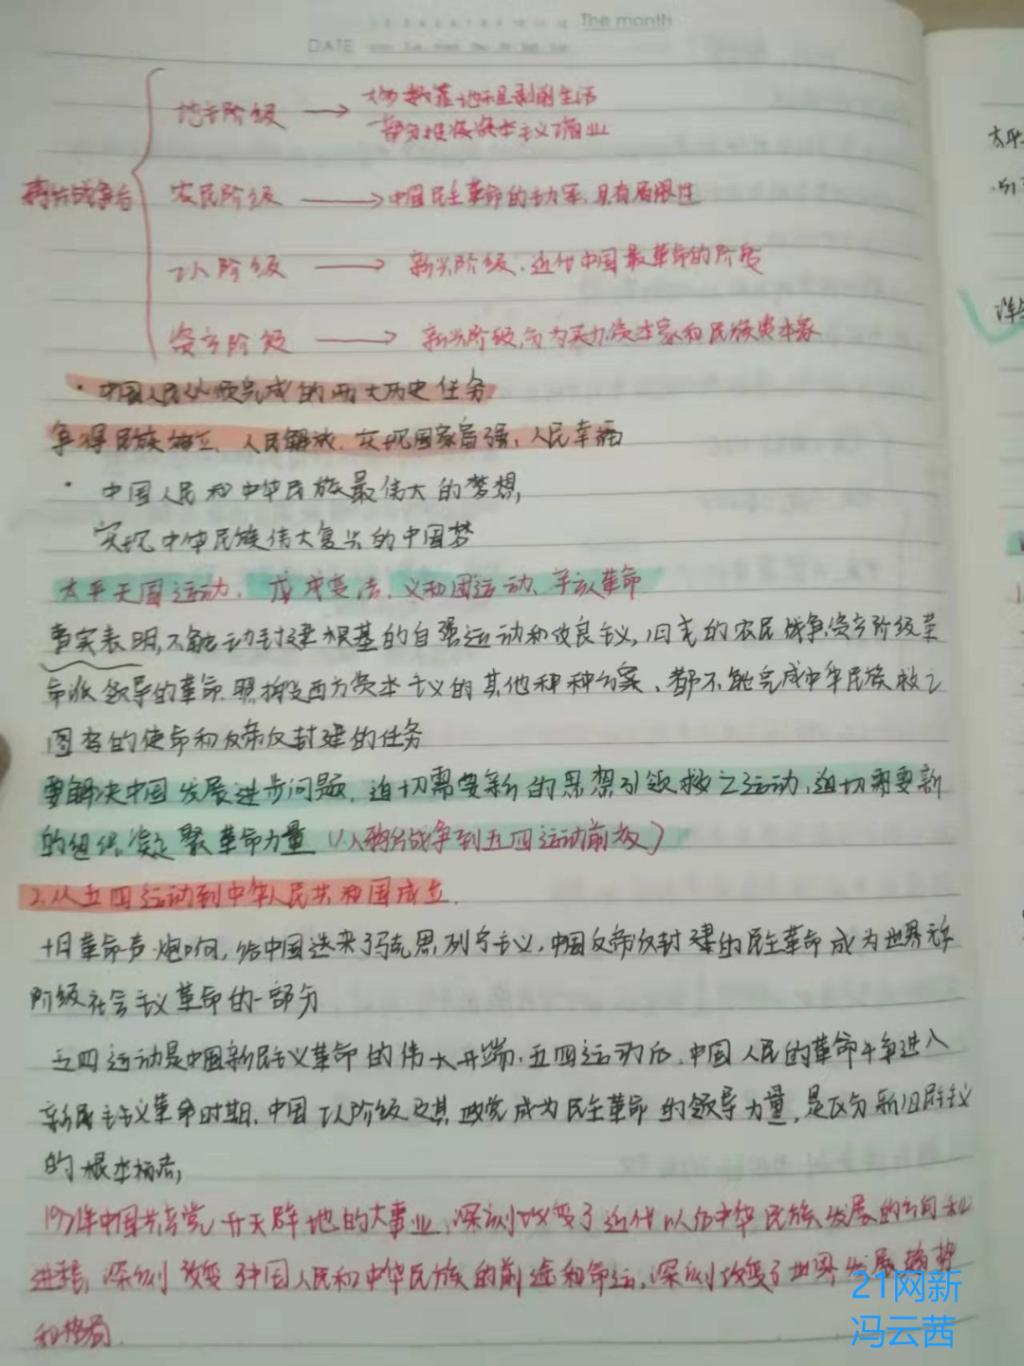 The month
DATE
地主阶级 → 大多数靠地租剥削生活
部分投资资本主义工商业
鸦片战争后
农民阶级 → 中国民主革命的主力军,具有局限性
工人阶级 → 新兴阶级,近代中国最革命的阶级
资产阶级 → 新兴阶级,分为买办资本家和民族资本家
·中国人民必须完成的两大历史任务
争得民族独立、人民解放,实现国家富强、人民幸福
·中国人民和中华民族最伟大的梦想,
实现中华民族伟大复兴的中国梦
太平天国运动,戊戌变法,义和团运动、辛亥革命
事实表明,不触动封建根基的自强运动和改良主义,旧式的农民战争,资产阶级革
命派领导的革命,照搬西方资本主义的其他种种方案,都不能完成中华民族救亡
图存的使命和反帝反封建的任务
要解决中国发展进步问题,迫切需要新的思想引领救亡运动,迫切需要新
的组织凝聚革命力量(从鸦片战争到五四运动前夜)
2.从五四运动到中华人民共和国成立.
十月革命一声炮响,给中国送来了马克思列宁主义,中国反帝反封建的民主革命成为世界无产
阶级社会主义革命的一部分
五四运动是中国新民主义革命的伟大开端,五四运动后,中国人民的革命斗争进入
新民主主义革命时期,中国工人阶级及其政党成为民主革命的领导力量,是区分新旧民主主义
的根本标志,
1921年中国共产党开天辟地的大事业,深刻改变了近代以后中华民族发展的方向和
进程,深刻改变了中国人民和中华民族的前途和命运,深刻改变了世界发展趋势
和格局.
21网新
冯云茜